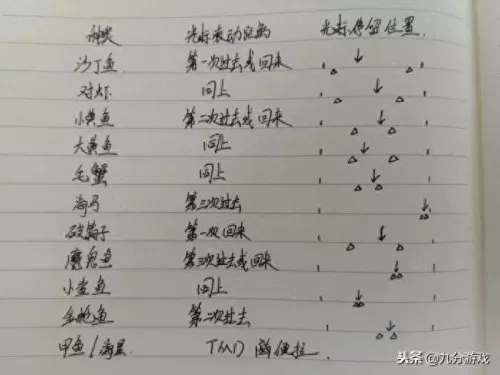 种类 光标滚动距离 光标停留位置
沙丁鱼 第一次过去或回来
对虾 同上
小黄鱼 第二次过去或回来
大黄鱼 同上
毛蟹 同上
海马 第三次过去
破箱子 第一次回来
魔鬼鱼 第三次过去或回来
小鲨鱼 同上
金枪鱼 第二次过去
甲鱼/海星 TMD 随便拉
头条@九分游戏